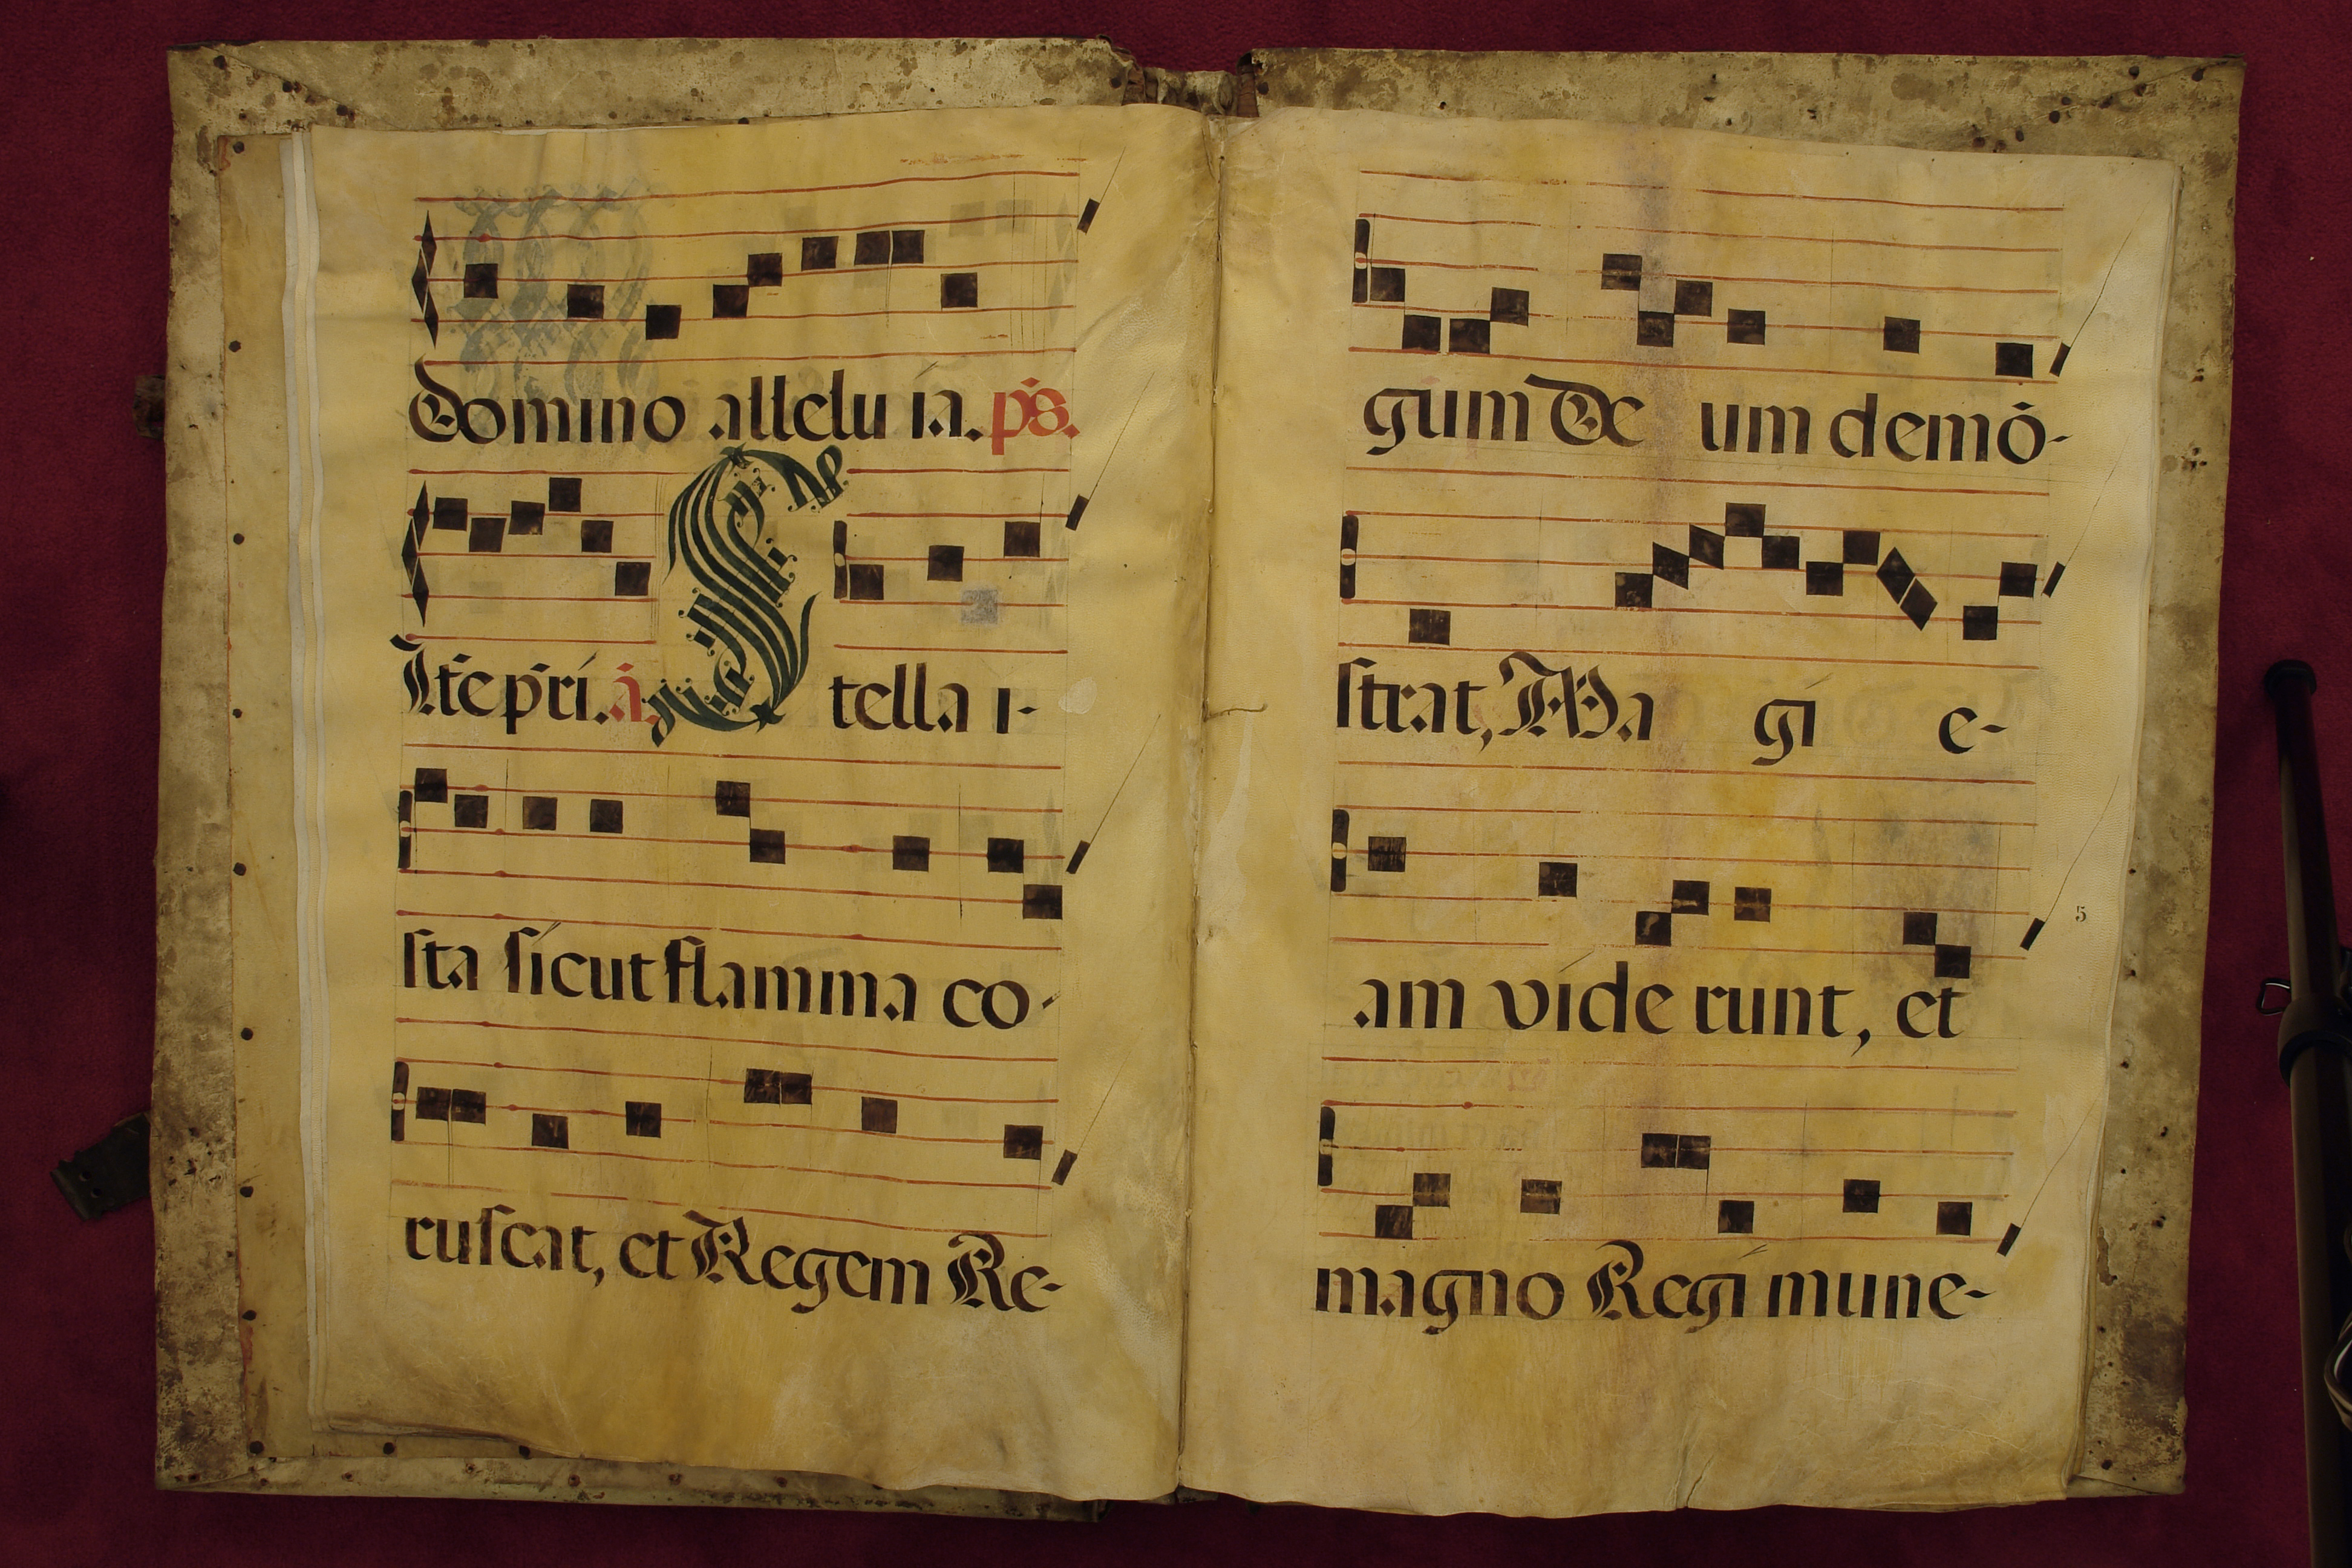 Domino alleluia. ps.
Ite pri. a. Stella i-
sta sicut flamma co-
ruscat, et Regem Re-
gum De um demó-
strat, Ma gi e-
am vide runt, et
5
magno Regi mune-